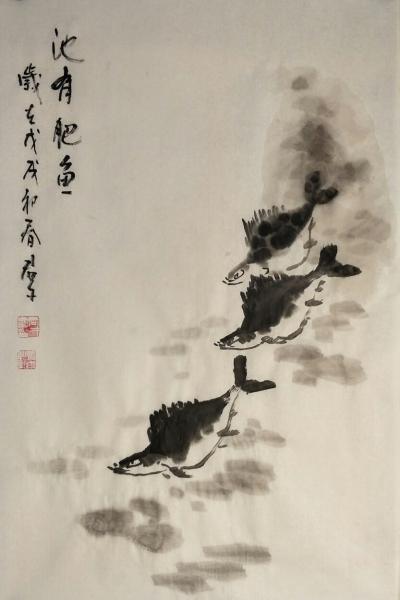 池有肥鱼
岁在戊戌初春